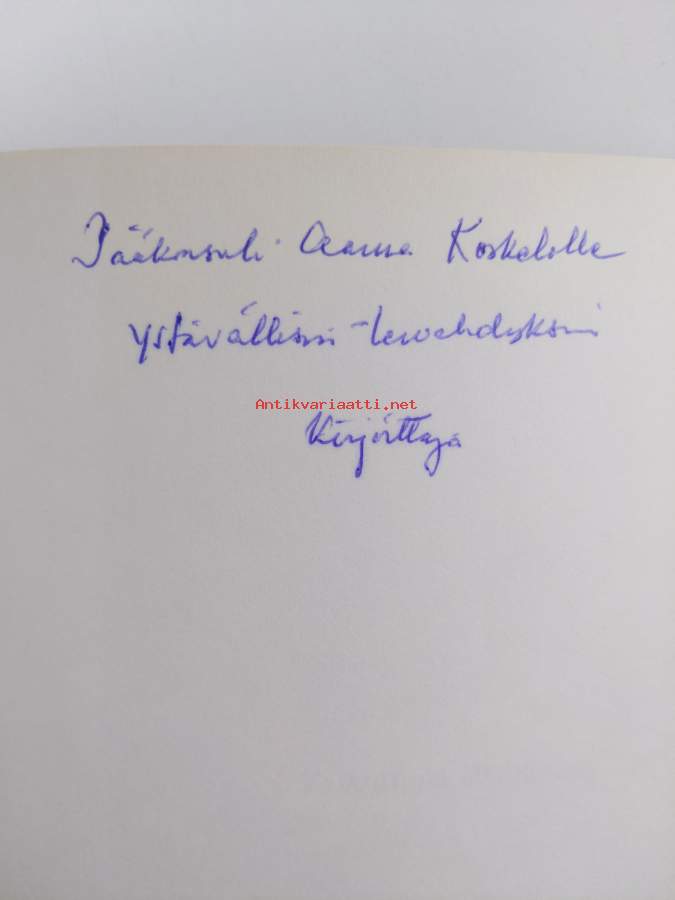 Pääkonsuli Aarne Koskelolle
ystävällisin tervehdyksin
Antikvariaatti.net
Kirjoittaja